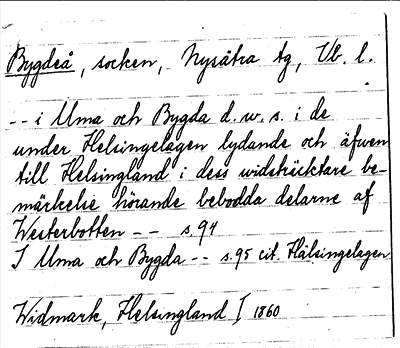 Bygdeå, socken, Nysätra tg, Vb. l.
-- i Uma och Bygda d. w. s. i de
under Helsingelagen lydande och äfwen
till Helsingland i dess widsträcktare be-
märkelse hörande bebodda delarne af
Westerbotten -- s. 94
I Uma och Bygda -- s. 95 cit. Hälsingelagen
Widmark, Helsingland I 1860